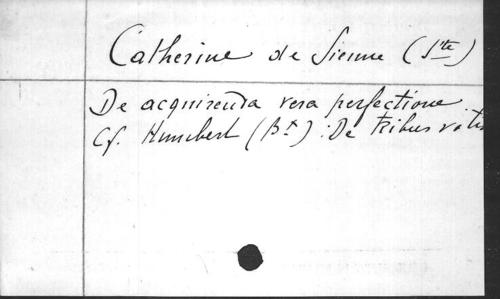 Catherine de Sienne (Ste)
De acquirenda vera perfectione.
Cf. Humbert (Bx) : De tribus votis